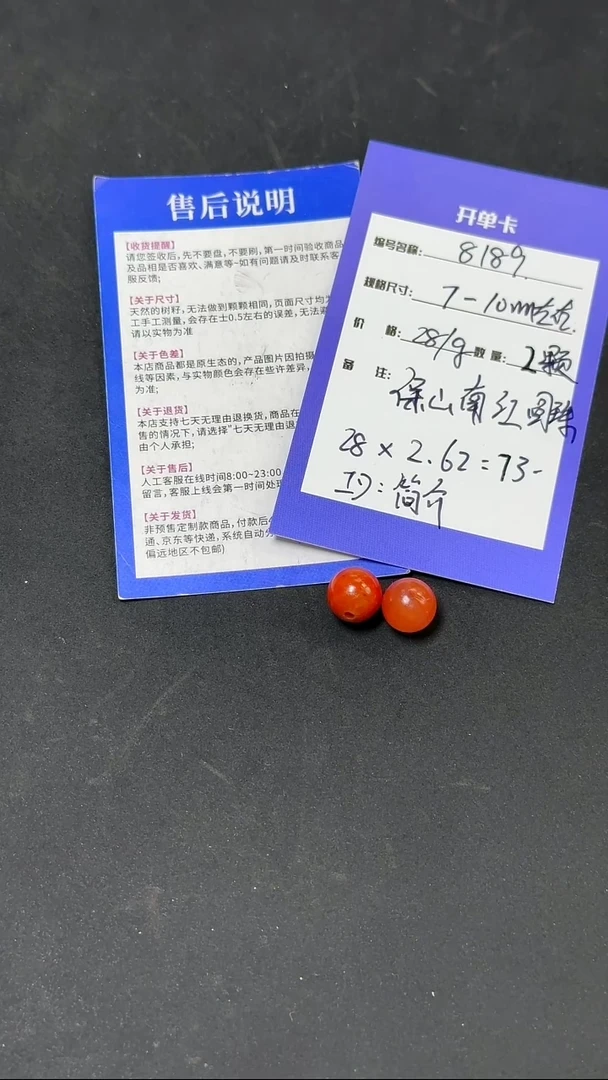 售后说明
【收货提醒】
请您签收后,先不要盘,不要刷,第一时间验收商品
及品相是否喜欢、满意等~如有问题请及时联系客
服反馈;
【关于尺寸】
天然的树籽,无法做到颗颗相同,页面尺寸均为
工手工测量,会存在士0.5左右的误差,无法避
请以实物为准
【关于色差】
本店商品都是原生态的,产品图片因拍摄
线等因素,与实物颜色会存在些许差异,
为准;
【关于退货】
本店支持七天无理由退换货,商品在
售的情况下,请选择"七天无理由退
由个人承担;
【关于售后】
人工客服在线时间8:00~23:00
留言,客服上线会第一时间处理
【关于发货】
非预售定制款商品,付款后
通、京东等快递,系统自动分
偏远地区不包邮)
开单卡
编号名称: 8189
规格尺寸: 7-10mm左右.
价 格: 28/g 数量: 2颗
备 注: 保山南红圆珠
28 × 2.62 = 73-
工厂: 简介